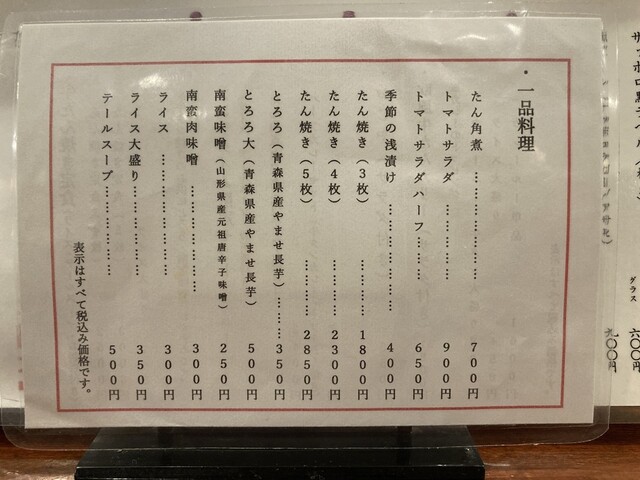 ・一品料理
たん角煮………………………700円
トマトサラダ…………………900円
トマトサラダハーフ…………650円
季節の浅漬け…………………400円
たん焼き(3枚)…………1800円
たん焼き(4枚)…………2300円
たん焼き(5枚)…………2850円
とろろ(青森県産やませ長芋)………350円
とろろ大(青森県産やませ長芋) 500円
南蛮味噌(山形県産元祖唐辛子味噌) 250円
南蛮肉味噌……………………300円
ライス…………………………300円
ライス大盛り…………………350円
テールスープ…………………500円
表示はすべて税込み価格です。
グラス
六〇〇円
九〇〇円